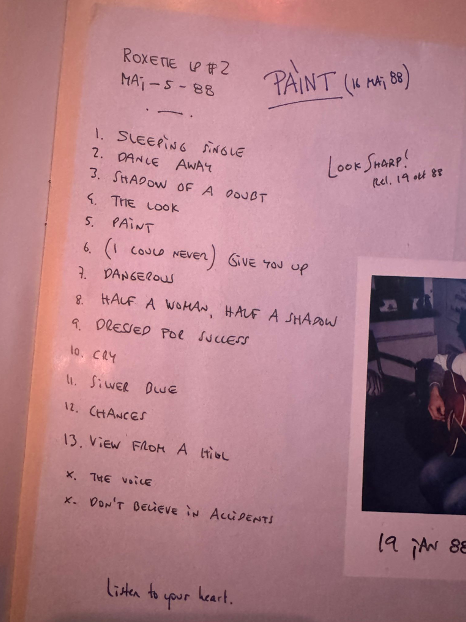 ROXETTE LP #2
MAJ-5-88
PAINT (16 MAJ 88)
1. SLEEPING SINGLE
2. DANCE AWAY
3. SHADOW OF A DOUBT
4. THE LOOK
5. PAINT
6. (I COULD NEVER) GIVE YOU UP
7. DANGEROUS
8. HALF A WOMAN, HALF A SHADOW
9. DRESSED FOR SUCCESS
10. CRY
11. SILVER BLUE
12. CHANCES
13. VIEW FROM A HILL
X. THE VOICE
X. DON'T BELIEVE IN ACCIDENTS
LOOK SHARP!
Rel. 19 okt 88
19 JAN 88
Listen to your heart.